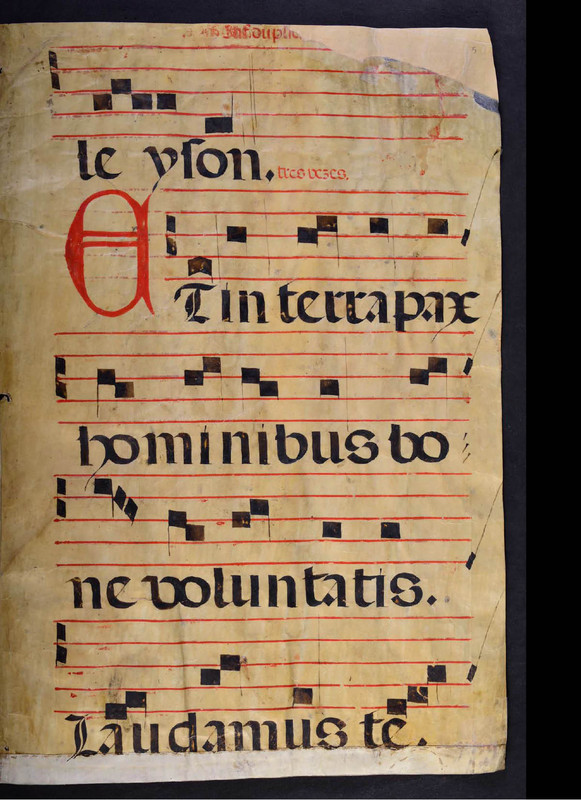 Inf. duplic.
le yson. tres vezes.
ET in terra pax
hominibus bo
ne voluntatis.
Laudamus te.